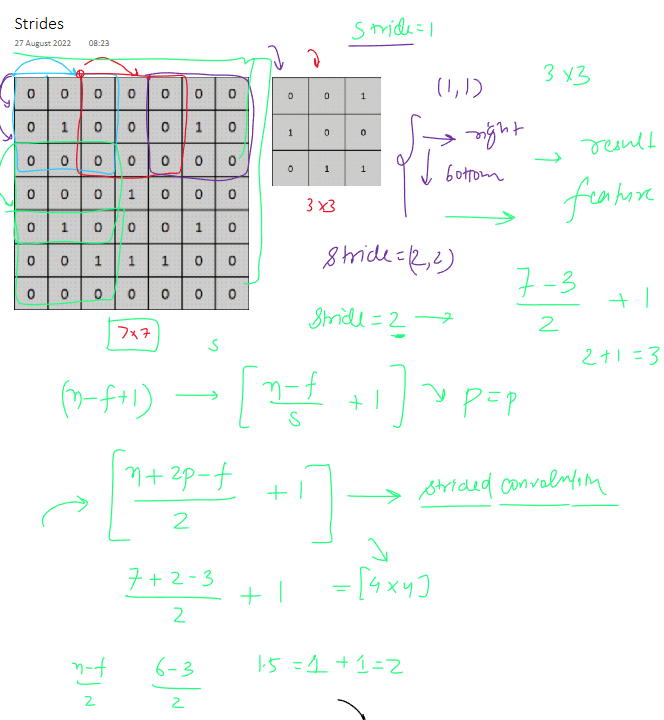 Strides
27 August 2022 08:23
Stride=1
0 0 0 0 0 0 0
0 1 0 0 0 1 0
0 0 0 0 0 0 0
0 0 0 1 0 0 0
0 1 0 0 0 1 0
0 0 1 1 1 0 0
0 0 0 0 0 0 0
7x7
0 0 1
1 0 0
0 1 1
3x3
(1,1)
3x3
→ right
↓ bottom
→ result
feature
→
Stride=(2,2)
Stride=2 →
7-3
2
+ 1
2+1=3
s
(n-f+1) → [ n-f
s
+ 1 ] ↘ P=p
→ [ n+2p-f
2
+ 1 ] → strided convolution
7+2-3
2
+ 1 = [4x4]
n-f
2
6-3
2
1.5 = 1 + 1 = 2